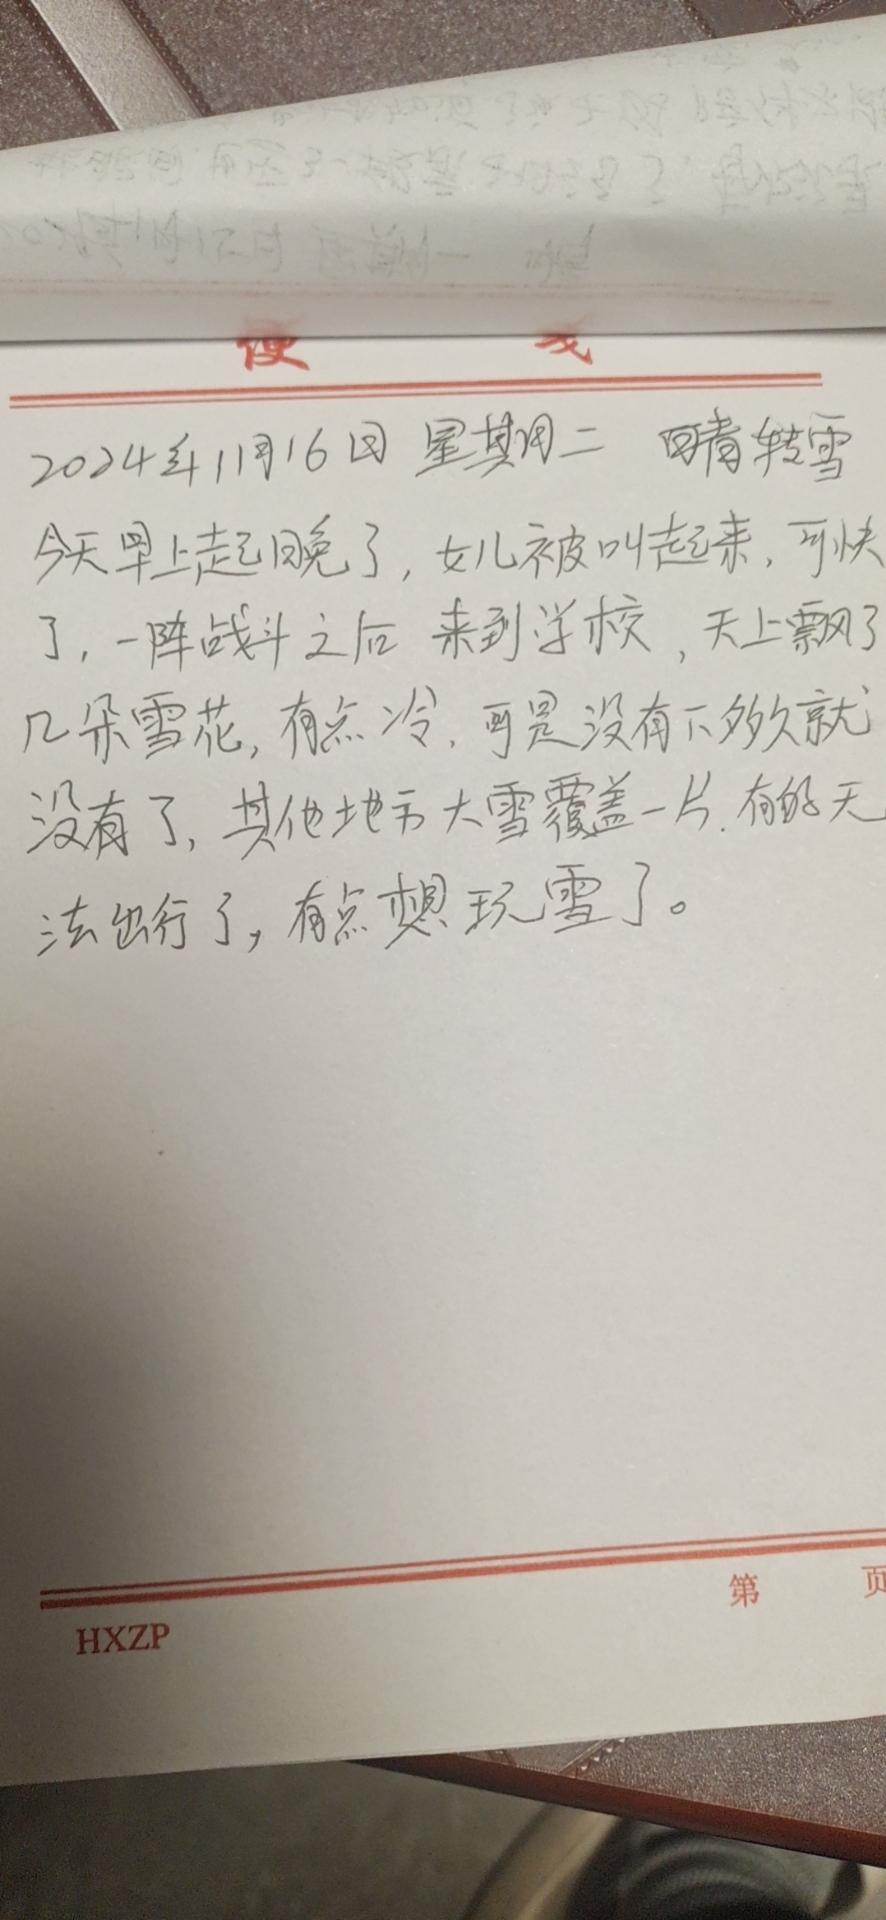 便 笺
2024年11月16日 星期二 晴转雪
今天早上起晚了，女儿被叫起来，可快
了，一阵战斗之后 来到学校，天上飘了
几朵雪花，有点冷，可是没有下多久就
没有了，其他地方大雪覆盖一片，有的无
法出行了，有点想玩雪了。
第 页
HXZP